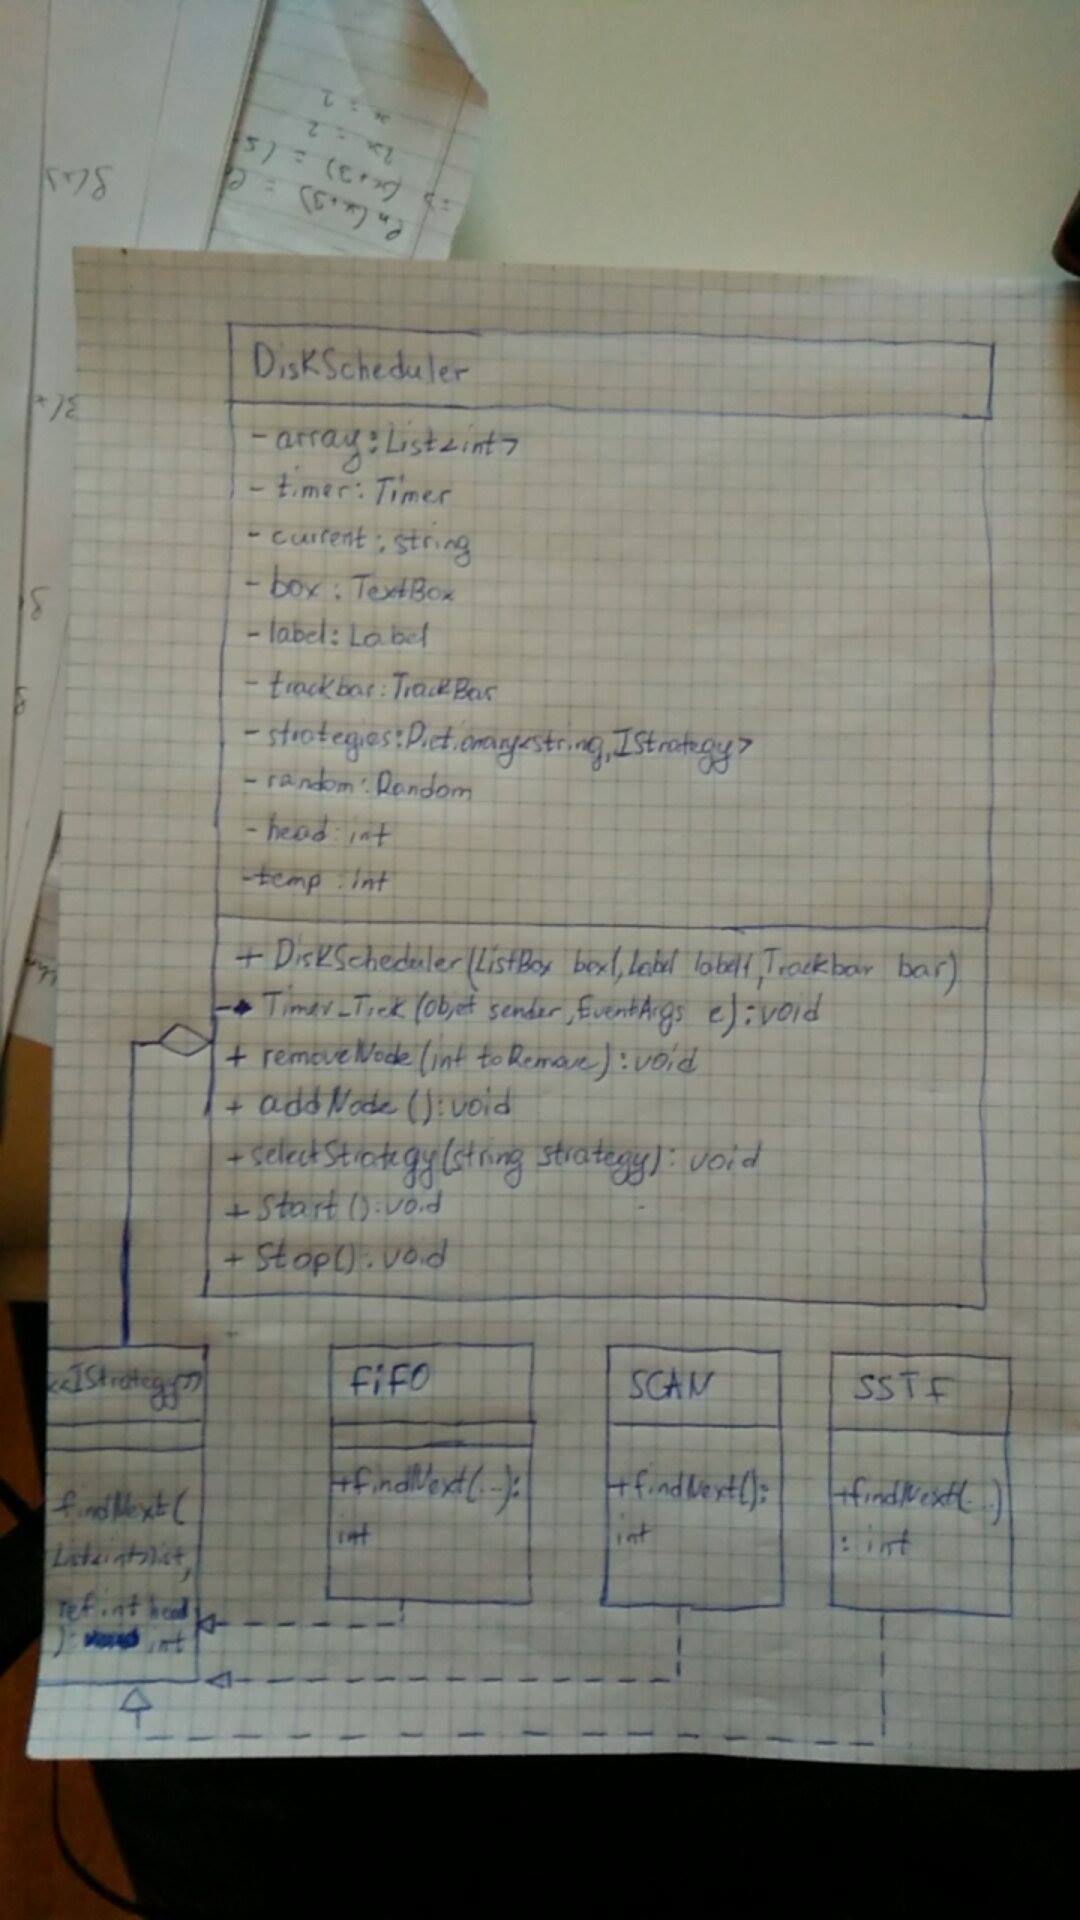 DiskScheduler
- array: List<int>
- timer: Timer
- current: string
- box: TextBox
- label: Label
- trackbar: TrackBar
- strategies: Dictionary<string, IStrategy>
- random: Random
- head: int
- temp: int
+ DiskScheduler(ListBox box1, Label label1, Trackbar bar)
- Timer_Tick (Objet sender, EventArgs e): void
+ removeNode (int toRemove): void
+ addNode (): void
+ selectStrategy(string strategy): void
+ Start (): void
+ Stop(): void
<<IStrategy>>
findNext(
List<int>list,
ref int head
): int
FiFO
+findNext(...):
int
SCAN
+findNext():
int
SSTF
+findNext(...)
: int
ln(x+3) =
=> (x+3) = (5
2x = 2
x = 1